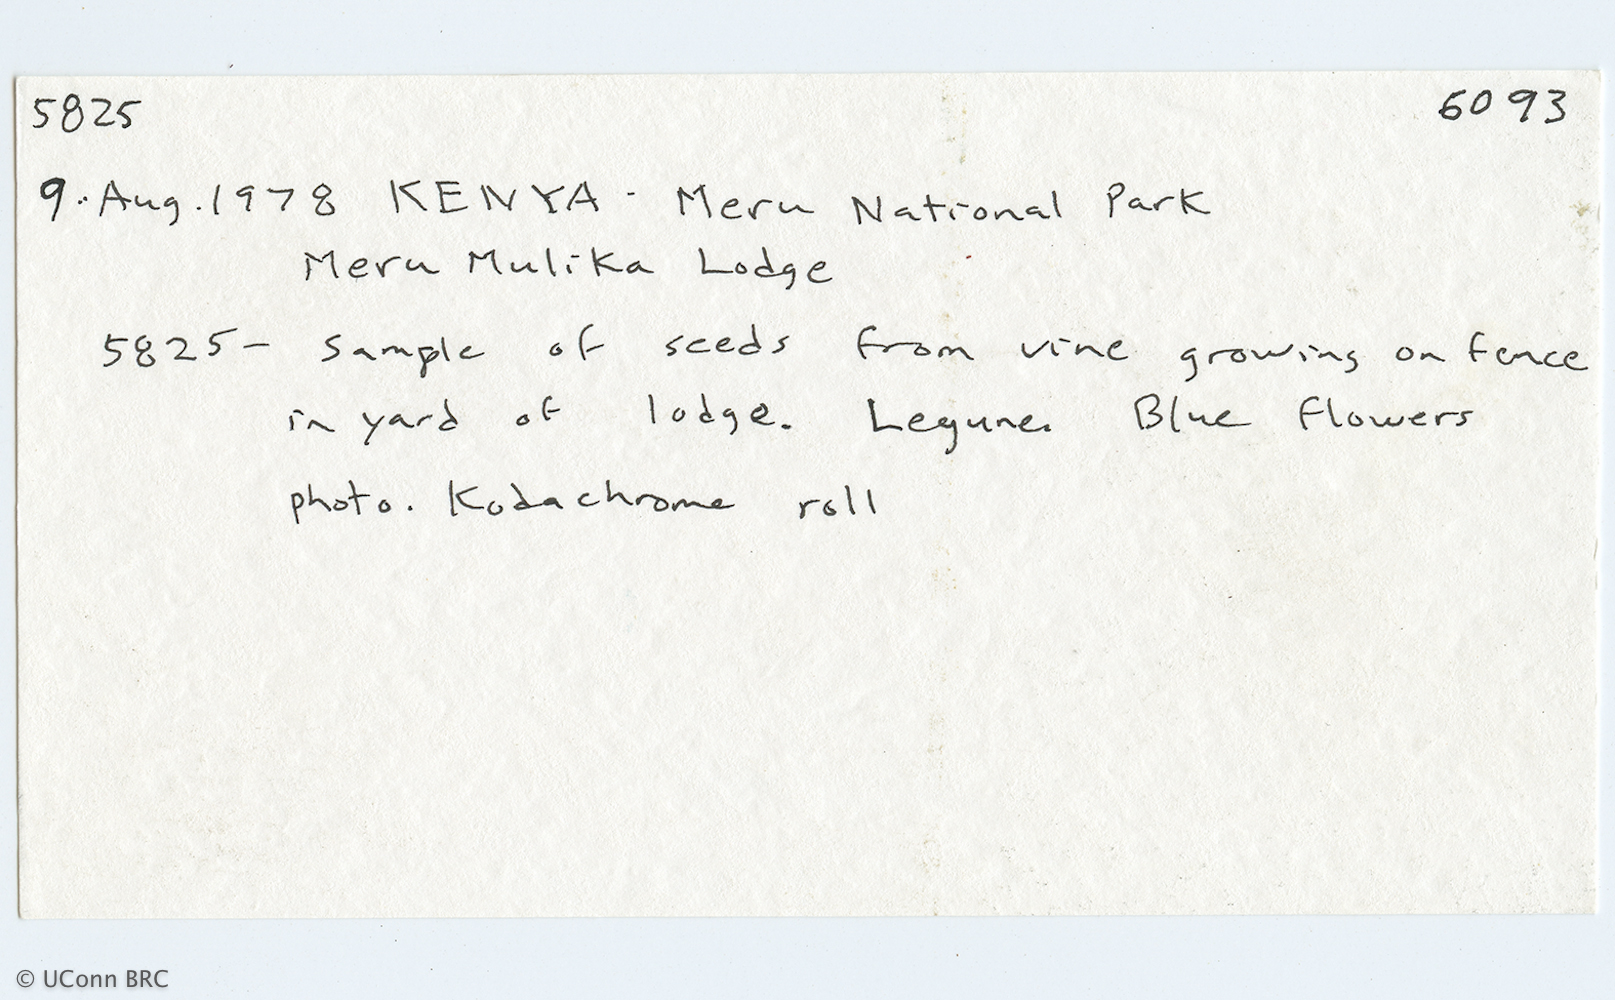 5825 6093
9. Aug. 1978 KENYA - Meru National Park
Meru Mulika Lodge
5825 - Sample of seeds from vine growing on fence
in yard of lodge. Legume. Blue flowers
photo. Kodachrome roll
© UConn BRC